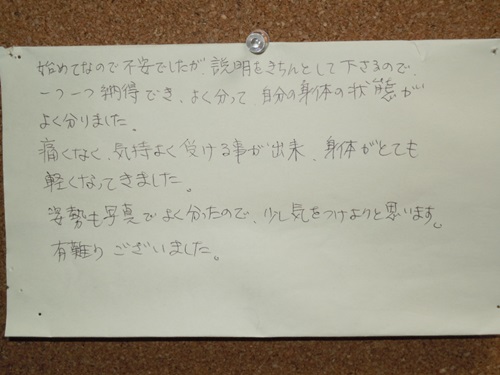 始めてなので不安でしたが、説明をきちんとして下さるので、
一つ一つ納得でき、よく分って、自分の身体の状態が
よく分りました。
痛くなく、気持よく受ける事が出来、身体がとても
軽くなってきました。
姿勢も写真でよく分ったので、少し気をつけようと思います。
有難うございました。